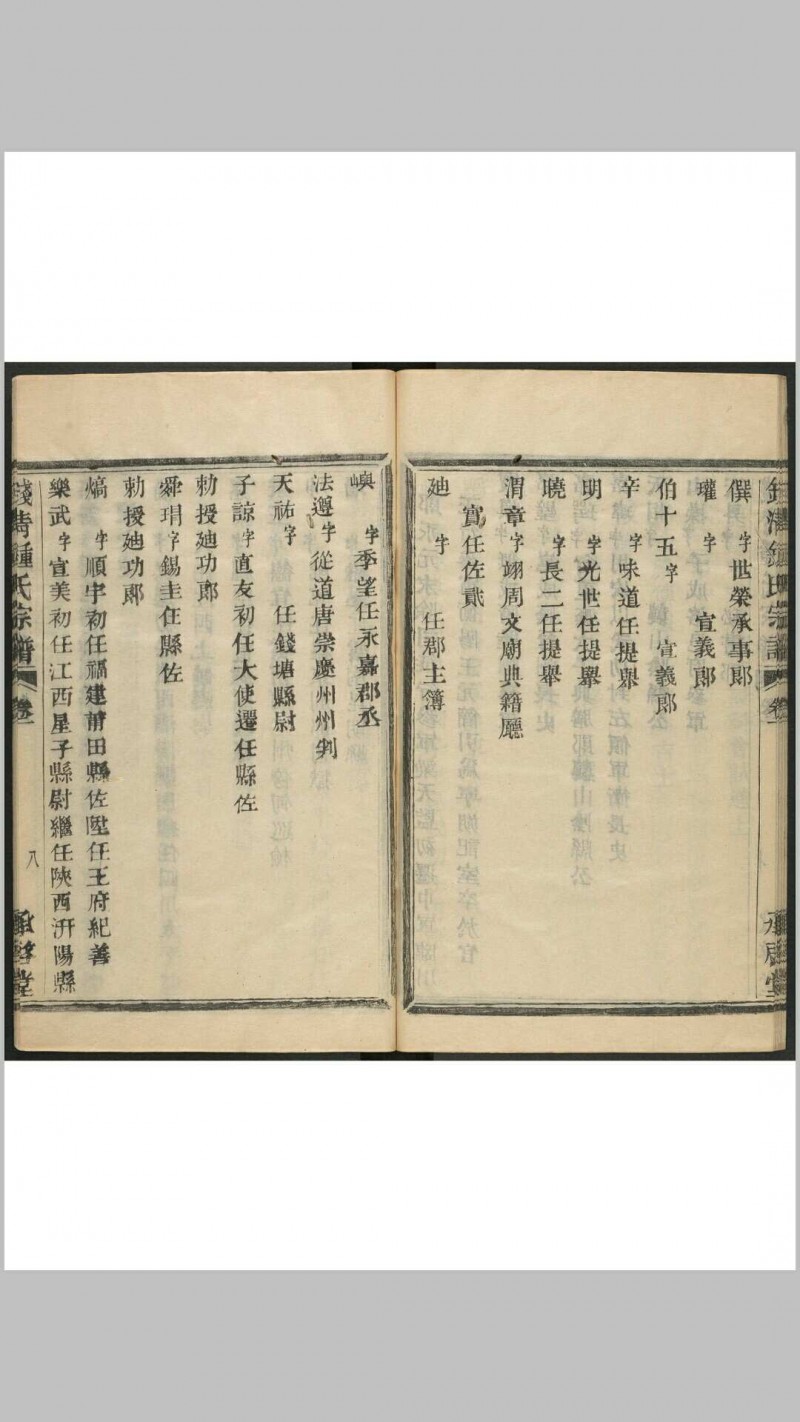 僎 字 世榮承事郎
瓘 字 宣義郎
伯十五字 宣義郎
辛 字 味道任提舉
明 字 光世任提舉
曉 字 長二任提舉
渭章字 翊周文廟典籍廳
實任佐貳
廸 字 任郡主簿
嶼 字 季望任永嘉郡丞
法遵字 從道唐崇慶州州判
天祐字 任錢塘縣尉
子諒字 直友初任大使遷任縣佐
勅授廸功郎
舜琄字 錫圭任縣佐
勅授廸功郎
熇 字 順宇初任福建莆田縣佐陞任王府紀善
樂武字 宣美初任江西星子縣尉繼任陝西汧陽縣
錢清鍾氏宗譜 卷一 八 承啓堂